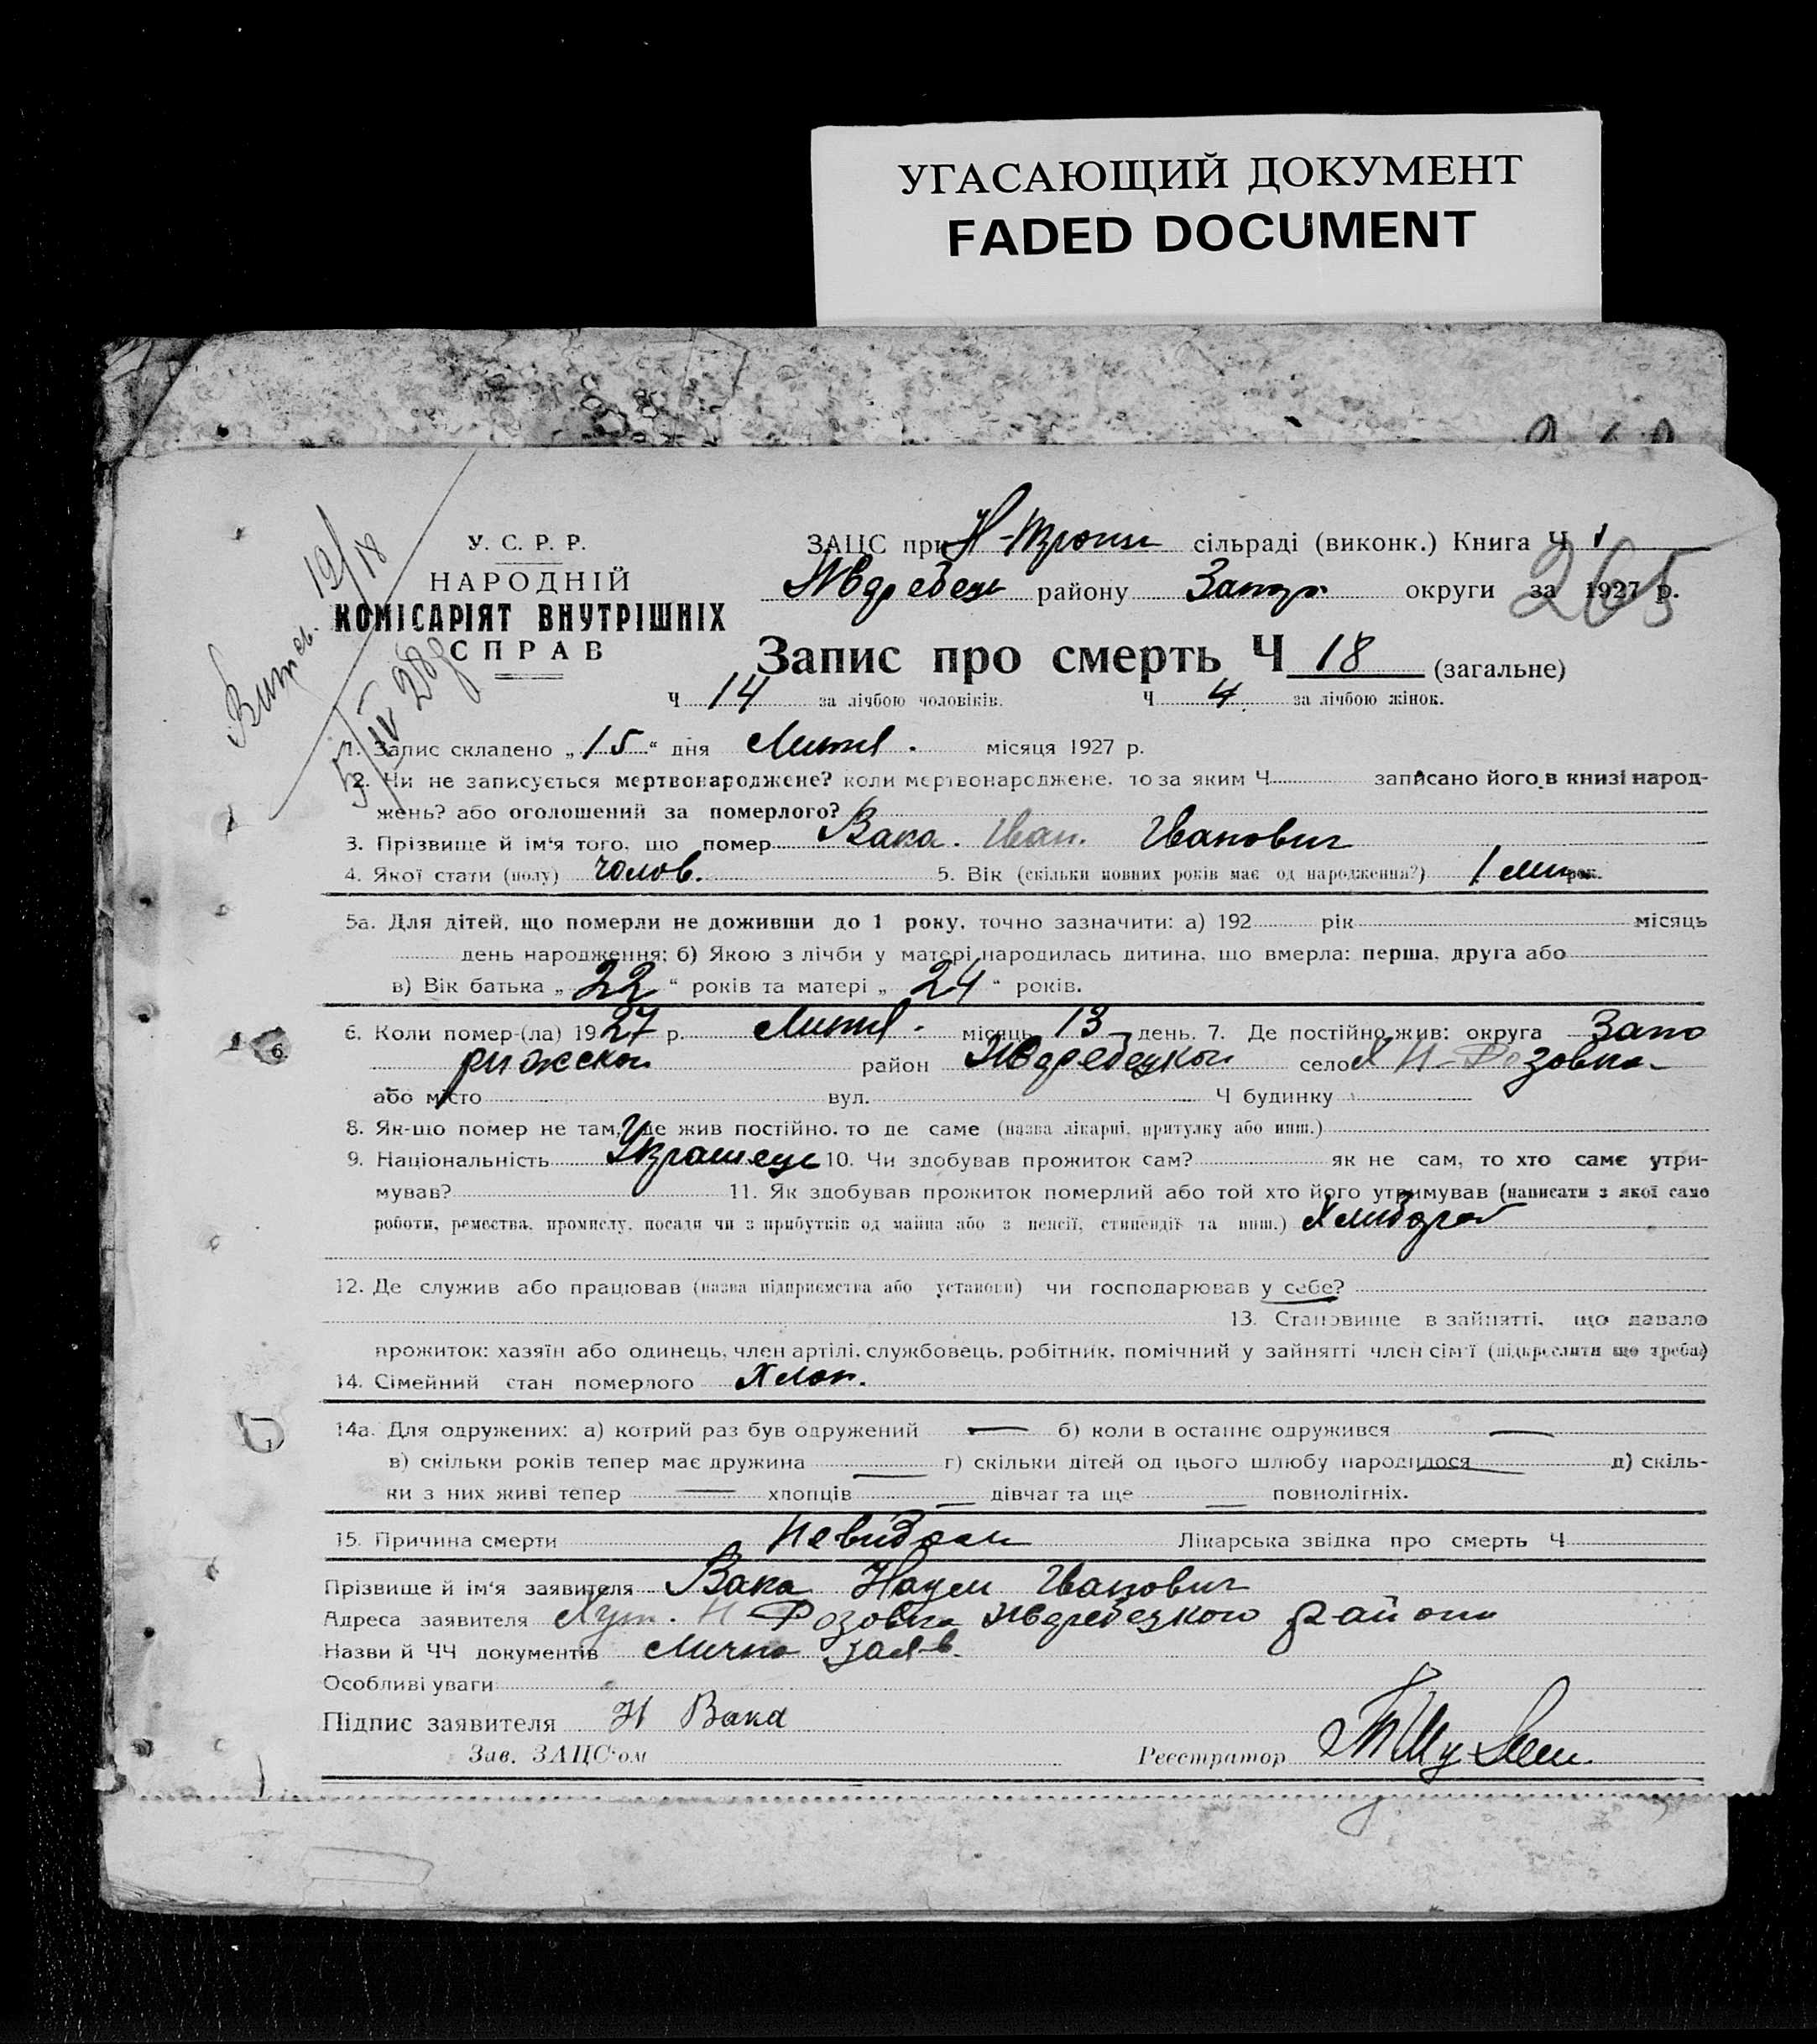 УГАСАЮЩИЙ ДОКУМЕНТ
FADED DOCUMENT
265
19/18
У. С. Р. Р.
НАРОДНІЙ
КОМІСАРІЯТ ВНУТРІШНІХ
СПРАВ
ЗАЦС при сільраді (виконк.) Книга Ч 1
району Запор. округи за 1927 р.
Запис про смерть Ч 18 (загальне)
Ч 14 за лічбою чоловіків. Ч 4 за лічбою жінок.
1. Запис складено „15“ дня місяця 1927 р.
2. Чи не записується мертвонароджене? коли мертвонароджене, то за яким Ч записано його в книзі народ-
жень? або оголошений за померлого?
3. Прізвище й ім'я того, що помер Вака. Іван. Іванович
4. Якої стати (полу) чолов. 5. Вік (скільки повних років має од народження?) 1 рок.
5а. Для дітей, що померли не доживши до 1 року, точно зазначити: а) 192 рік місяць
день народження; б) Якою з лічби у матері народилась дитина, що вмерла: перша, друга або
в) Вік батька „22“ років та матері „24“ років.
6. Коли помер-(ла) 1927 р. місяць 13 день. 7. Де постійно жив: округа Запо
рижскои район село Х Н-Розовка
або місто вул. Ч будинку
8. Як-що помер не там, де жив постійно, то де саме (назва лікарні, притулку або инш.)
9. Національність Украинець 10. Чи здобував прожиток сам? як не сам, то хто саме утри-
мував? 11. Як здобував прожиток померлий або той хто його утримував (написати з якої само
роботи, ремества, промислу, посади чи з прибутків од майна або з пенсії, стипендії та инш.) Хлибороб
12. Де служив або працював (назва підприємства або установи) чи господарював у себе?
13. Становище в зайнятті, що давало
прожиток: хазяїн або одинець, член артілі, службовець, робітник, помічний у зайнятті член сім'ї (підкреслити що треба)
14. Сімейний стан померлого Хлоп.
14а. Для одружених: а) котрий раз був одружений — б) коли в останнє одружився —
в) скільки років тепер має дружина — г) скільки дітей од цього шлюбу народилося — д) скіль-
ки з них живі тепер — хлопців — дівчат та ще — повнолітніх.
15. Причина смерти Невидома Лікарська звідка про смерть Ч
Прізвище й ім'я заявителя Вака Наум Іванович
Адреса заявителя Хут. Н Розовка району
Назви й ЧЧ документів Лично заяв.
Особливі уваги
Підпис заявителя Н Вака
Зав. ЗАЦС'ом Реєстратор